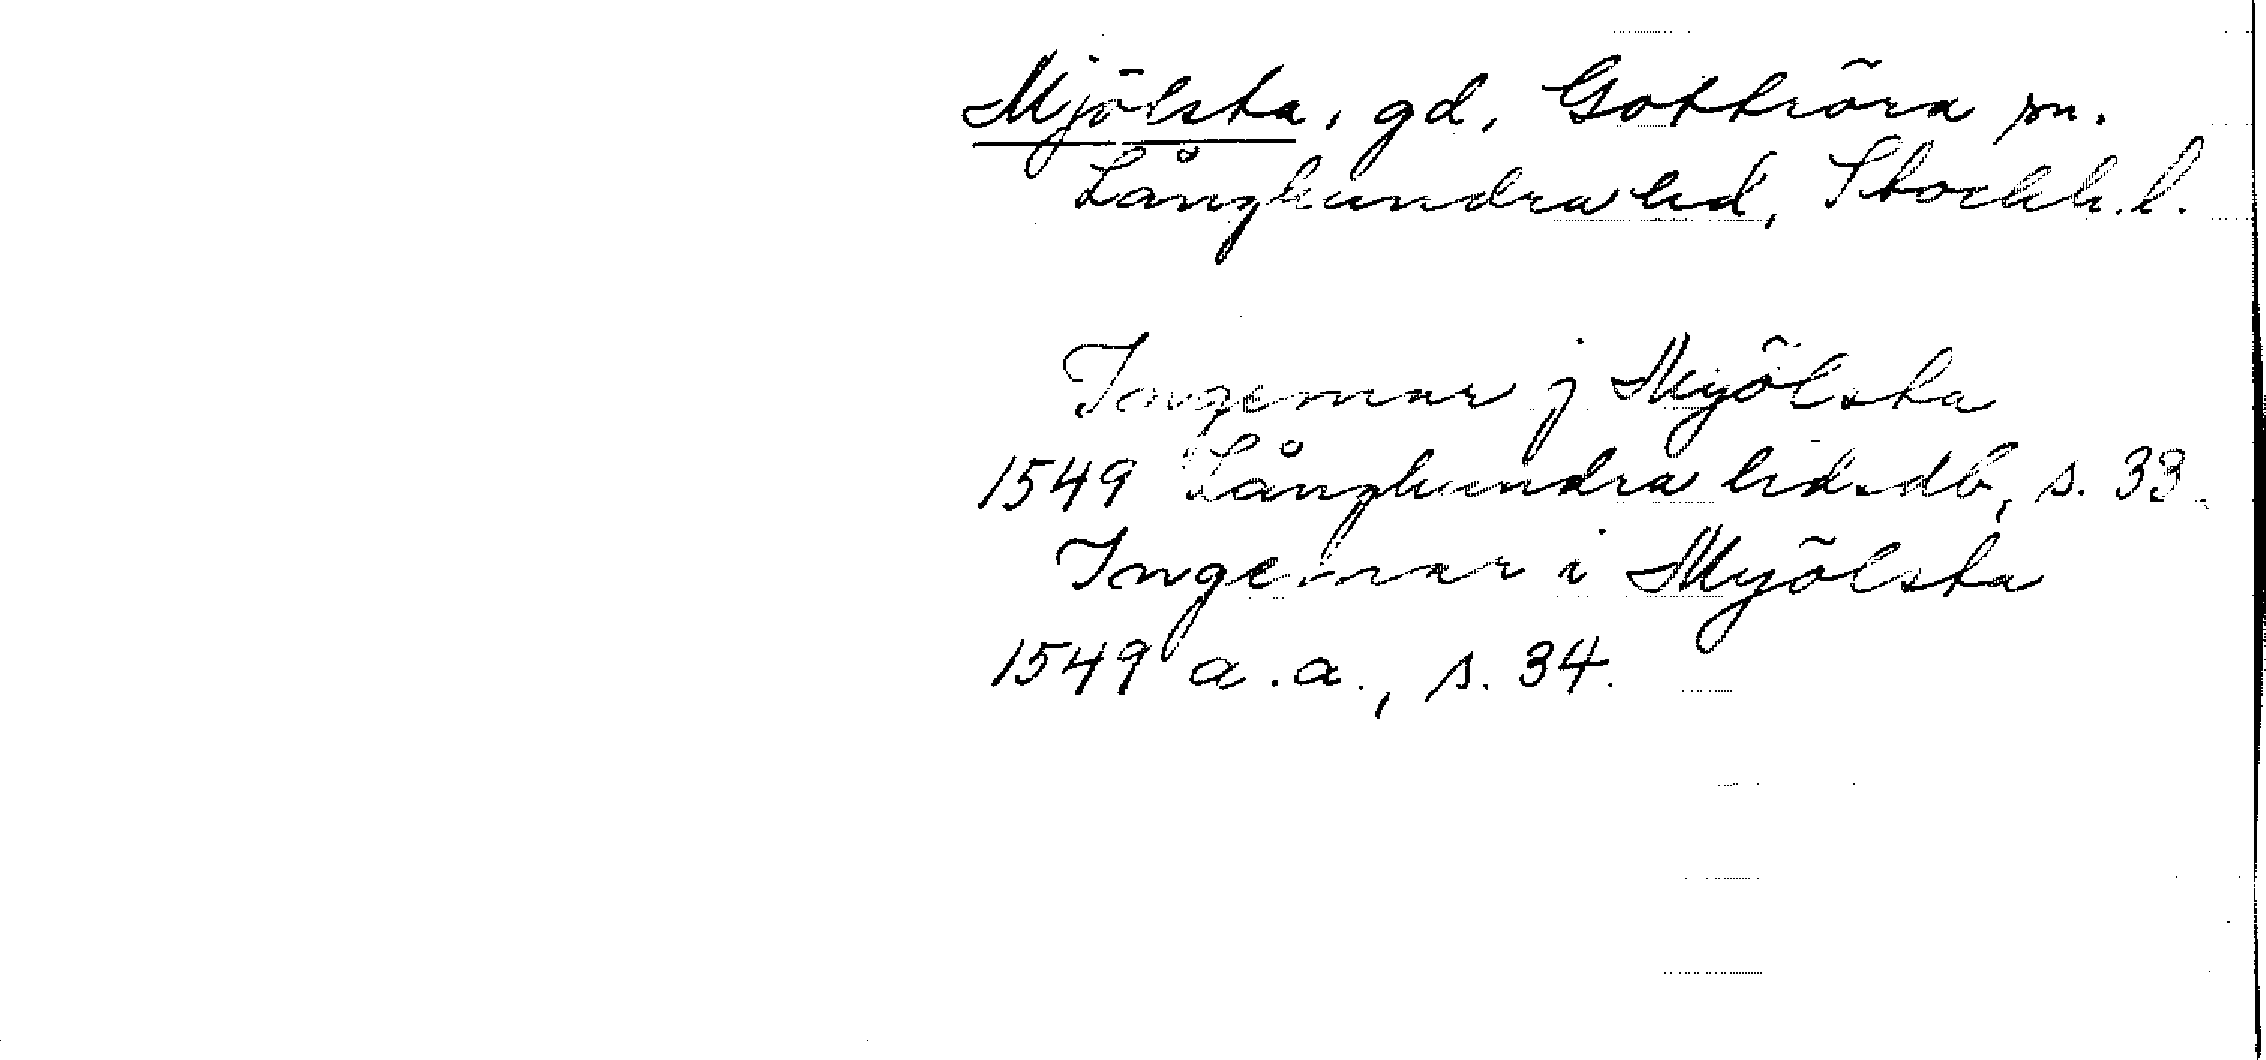 Mjölsta, gd, Gottröra sn.
Långhundra hd, Stockh. l.
Ingemar j Myölsta
1549 Långhundra hds db, s. 33.
Ingemar i Myölsta
1549 a.a., s. 34.